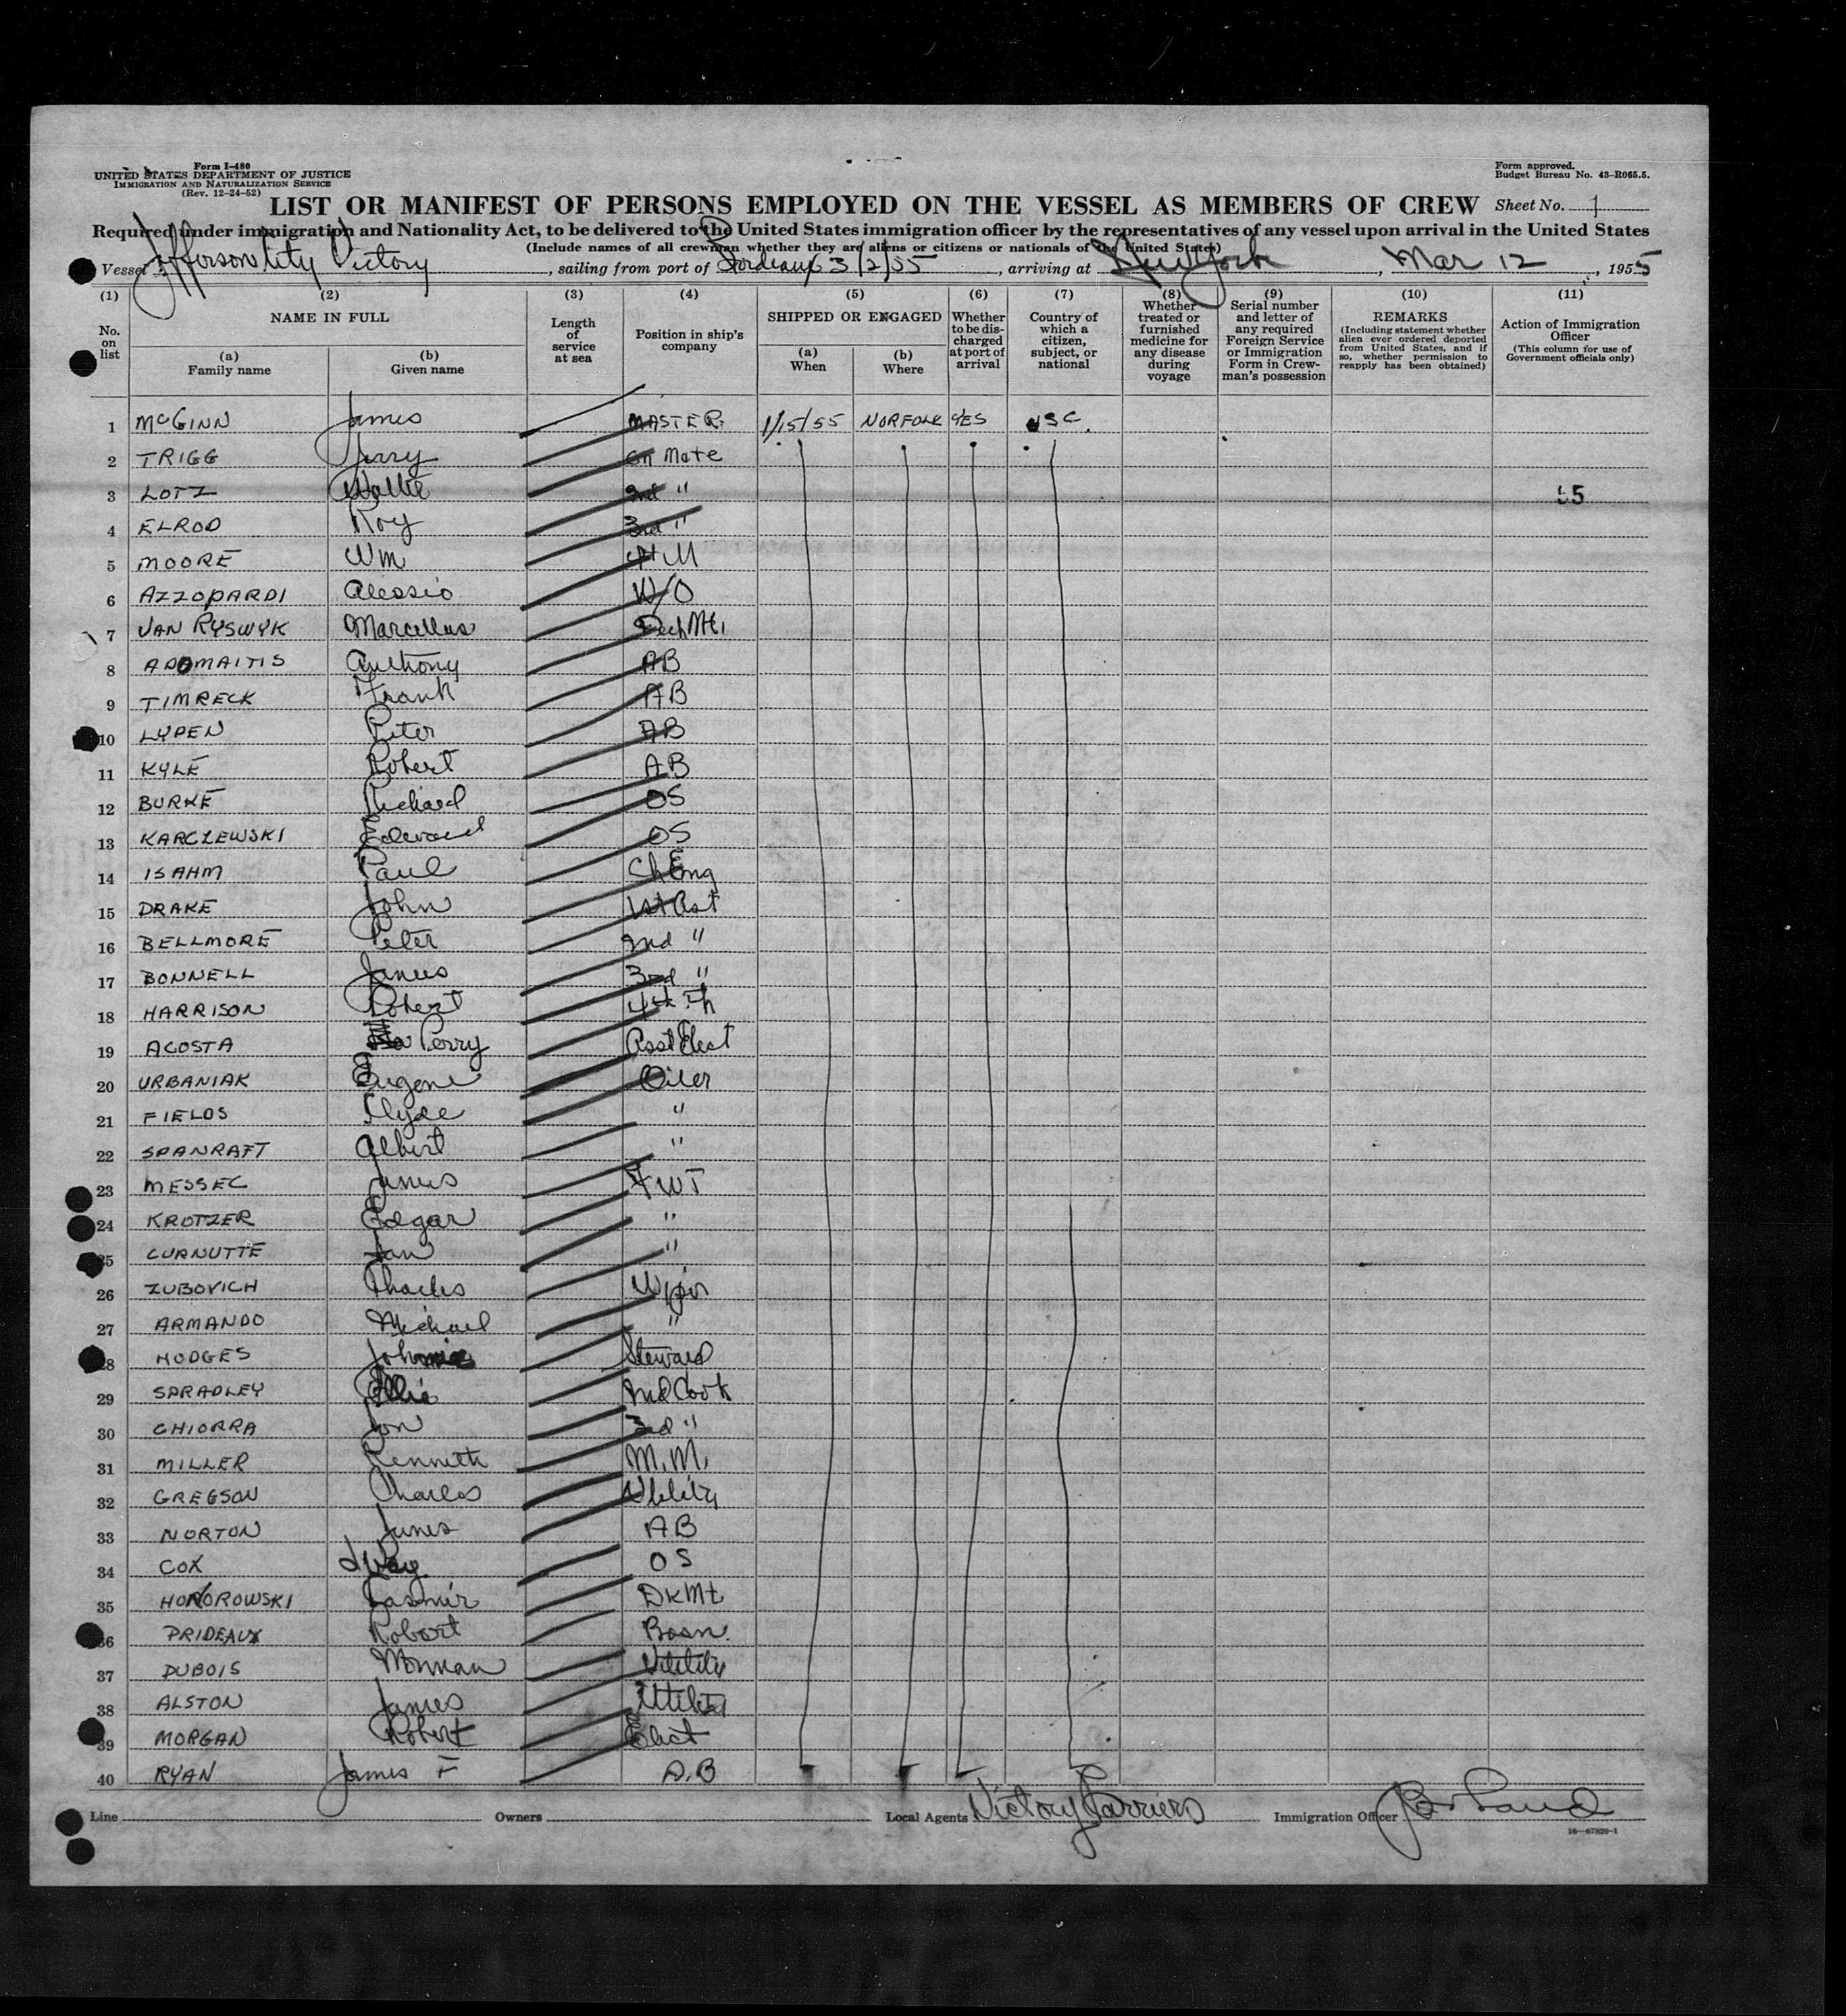 Form I-480
UNITED STATES DEPARTMENT OF JUSTICE
IMMIGRATION AND NATURALIZATION SERVICE
(Rev. 12-24-52)
Form approved.
Budget Bureau No. 43-R065.5.
LIST OR MANIFEST OF PERSONS EMPLOYED ON THE VESSEL AS MEMBERS OF CREW Sheet No. 1
Required under immigration and Nationality Act, to be delivered to the United States immigration officer by the representatives of any vessel upon arrival in the United States
(Include names of all crewmen whether they are aliens or citizens or nationals of the United States)
Vessel Jefferson City Victory, sailing from port of Bordeaux 3/2/55, arriving at New York, Mar 12, 1955
(1) (2) (3) (4) (5) (6) (7) (8) (9) (10) (11)
No. on list
NAME IN FULL
(a) Family name
(b) Given name
Length of service at sea
Position in ship's company
SHIPPED OR ENGAGED
(a) When
(b) Where
Whether to be discharged at port of arrival
Country of which a citizen, subject, or national
Whether treated or furnished medicine for any disease during voyage
Serial number and letter of any required Foreign Service or Immigration Form in Crewman's possession
REMARKS
(Including statement whether alien ever ordered deported from United States, and if so, whether permission to reapply has been obtained)
Action of Immigration Officer
(This column for use of Government officials only)
1 McGINN James MASTER 1/15/55 NORFOLK YES USC.
2 TRIGG Jerry Ch Mate
3 LOTZ 2nd " 55
4 ELROD Roy 3rd "
5 MOORE Wm 4th M
6 AZZOPARDI Alessio W/O
7 VAN RYSWYK Marcellus Deck Mt.
8 ADOMAITIS Anthony AB
9 TIMRECK Frank AB
10 LYPEN Peter AB
11 KYLE Robert AB
12 BURKE Richard OS
13 KARCZEWSKI Edward OS
14 ISAHM Paul Ch Eng
15 DRAKE John 1st Ast
16 BELLMORE Peter 2nd "
17 BONNELL James 3rd "
18 HARRISON Robert
19 ACOSTA Perry Asst Elect
20 URBANIAK Eugene Oiler
21 FIELDS Clyde "
22 SPANRAFT Albert "
23 MESSEC James FWT
24 KROTZER Edgar "
25 CURNUTTE Ian "
26 ZUBOVICH Charles Wiper
27 ARMANDO Michael "
28 HODGES Johnnie Steward
29 SPRADLEY Ellis 2nd Cook
30 CHIORRA Jon 3rd "
31 MILLER Kenneth M.M.
32 GREGSON Charles Utility
33 NORTON James AB
34 COX OS
35 HONOROWSKI Casmir DKMt
36 PRIDEAUX Robert Bosn.
37 DUBOIS Norman Utility
38 ALSTON James Utility
39 MORGAN Robert Elect
40 RYAN James F A.B
Line Owners Local Agents Victory Carriers Immigration Officer
16—67820-1